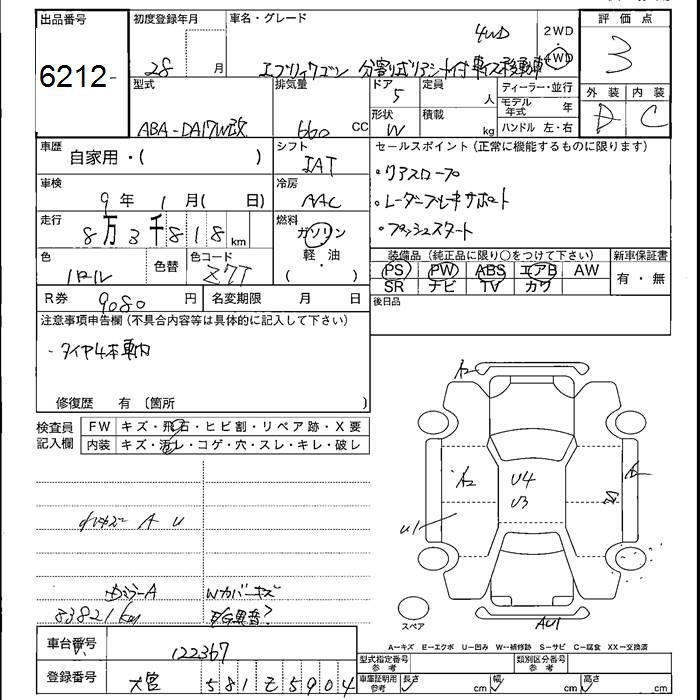 出品番号
6212
初度登録年月
28 月
車名・グレード
エブリィワゴン 分割リヤシート付 車イス移動車 4WD
2WD
4WD
評価点
3
外装 内装
D C
型式
ABA-DA17W改
排気量
660 CC
ドア
5
形状
W
定員
人
積載
kg
ディーラー・並行
モデル年式 年
ハンドル 左・右
車歴
自家用・( )
シフト
IAT
セールスポイント(正常に機能するものに限ります)
・リアスロープ
・レーダーブレーキサポート
・プッシュスタート
車検
9年 1月( 日)
冷房
AAC
走行
8万3千818 km
燃料
ガソリン
軽・油
( )
色
パール
色替
色コード
Z7T
装備品(純正品に限り○をつけて下さい)
PS PW ABS エアB AW
SR ナビ TV カワ
新車保証書
有・無
後日品
R券 9080円
名変期限 月 日
注意事項申告欄(不具合内容等は具体的に記入して下さい)
・タイヤ4本車内
修復歴 有(箇所
検査員
記入欄
FW キズ・飛石・ヒビ割・リペア跡・X要
内装 キズ・汚レ・コゲ・穴・スレ・キレ・破レ
A U
ミラーA
83821km
Wカバーキズ
E/G異音?
A2
A2
U4
U3
U1
AU1
スペア
A-キズ E-エクボ U-凹み W-補修跡 S-サビ C-腐食 XX-交換済
車台番号
122367
登録番号
大宮 581 そ 5904
型式指定番号
参考
類別区分番号
参考
車庫証明用
参考
長さ cm 幅 cm 高さ cm